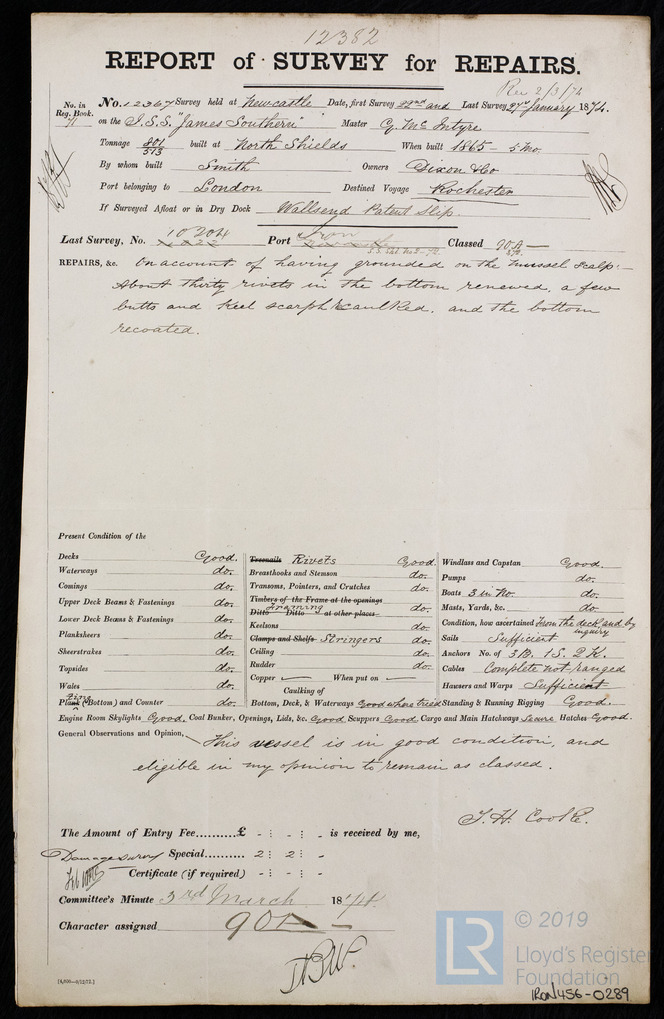 12382
REPORT of SURVEY for REPAIRS.
Rec 2/3/74
No. in Reg. Book. 71
No. 12367 Survey held at Newcastle Date, first Survey 22nd and Last Survey 27th January 1874.
on the I.S.S. "James Southern" Master G. Mc Intyre
Tonnage 801/513 built at North Shields When built 1865 - 5 Mo
By whom built Smith Owners Dixon & Co
Port belonging to London Destined Voyage Rochester
If Surveyed Afloat or in Dry Dock Wallsend Patent Slip.
Last Survey, No. 10204 Port Iron Classed 90A —
REPAIRS, &c. On account of having grounded on the mussel scalp:—
About thirty rivets in the bottom renewed, a few
butts and keel scarphs caulked, and the bottom
recoated.
Present Condition of the
Decks Good.
Waterways do.
Comings do.
Upper Deck Beams & Fastenings do.
Lower Deck Beams & Fastenings do.
Planksheers do.
Sheerstrakes do.
Topsides do.
Wales do.
Plating (Bottom) and Counter do.
Treenails Rivets Good.
Breasthooks and Stemson do.
Transoms, Pointers, and Crutches do.
Timbers of the Frame at the openings
Framing do.
Ditto Ditto at other places
Keelsons do.
Clamps and Shelfs Stringers do.
Ceiling do.
Rudder do.
Copper — When put on —
Caulking of
Bottom, Deck, & Waterways Good where tried
Windlass and Capstan Good.
Pumps do.
Boats 3 in No. do.
Masts, Yards, &c. do.
Condition, how ascertained from the deck and by inquiry
Sails Sufficient
Anchors No. of 3 B. 1 S. 2 K.
Cables Complete not ranged
Hawsers and Warps Sufficient
Standing & Running Rigging Good.
Engine Room Skylights Good. Coal Bunker, Openings, Lids, &c. Good Scuppers Good Cargo and Main Hatchways Secure Hatches Good.
General Observations and Opinion, This vessel is in good condition, and
eligible in my opinion to remain as classed.
T. H. Cooke.
The Amount of Entry Fee..........£ - : : - : : - is received by me,
Damage survey Special.......... 2 : 2 : -
Certificate (if required) - : : - : : -
Committee's Minute 3rd March 1874
Character assigned 90A —
[4,600—9/12/72.]
LR
© 2019
Lloyd's Register
Foundation
IRON456-0289